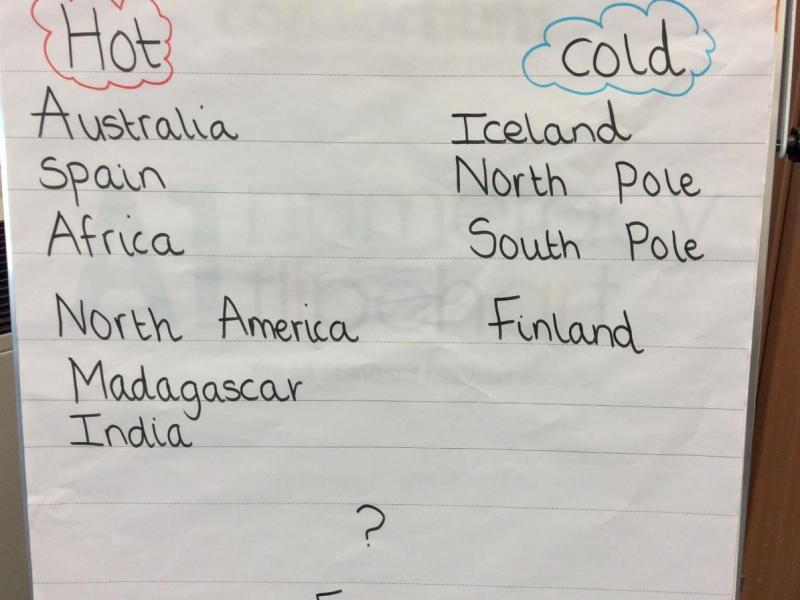 Hot
Cold
Australia
Spain
Africa
North America
Madagascar
India
Iceland
North Pole
South Pole
Finland
?